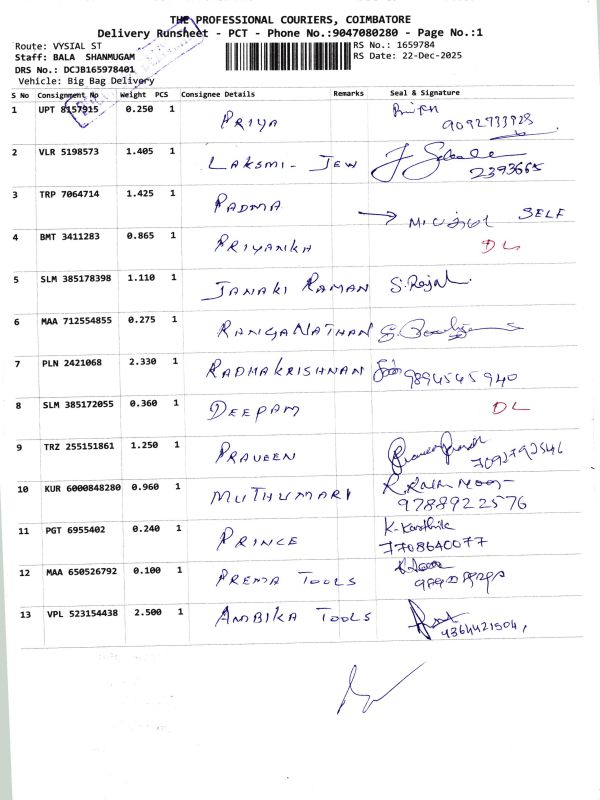 THE PROFESSIONAL COURIERS, COIMBATORE
Delivery Runsheet - PCT - Phone No.:9047080280 - Page No.:1
Route: VYSIAL ST RS No.: 1659784
Staff: BALA SHANMUGAM RS Date: 22-Dec-2025
DRS No.: DCJB165978401
Vehicle: Big Bag Delivery
S No Consignment No Weight PCS Consignee Details Remarks Seal & Signature
1 UPT 8157915 0.250 1 PRIYA
9092733928
2 VLR 5198573 1.405 1 LAKSMI- JEW
2393665
3 TRP 7064714 1.425 1 PADMA SELF
4 BMT 3411283 0.865 1 PRIYANKA DL
5 SLM 385178398 1.110 1 JANAKI RAMAN S.Rajal.
6 MAA 712554855 0.275 1 RANGANATHAN
7 PLN 2421068 2.330 1 RADHAKRISHNAN 9894545940
8 SLM 385172055 0.360 1 DEEPAM DL
9 TRZ 255151861 1.250 1 PRAVEEN
7092792546
10 KUR 6000848280 0.960 1 MUTHUMARI
9788922576
11 PGT 6955402 0.240 1 PRINCE K-Karthik
7708640077
12 MAA 650526792 0.100 1 PREMA TOOLS
13 VPL 523154438 2.500 1 AMBIKA TOOLS
9364421504,